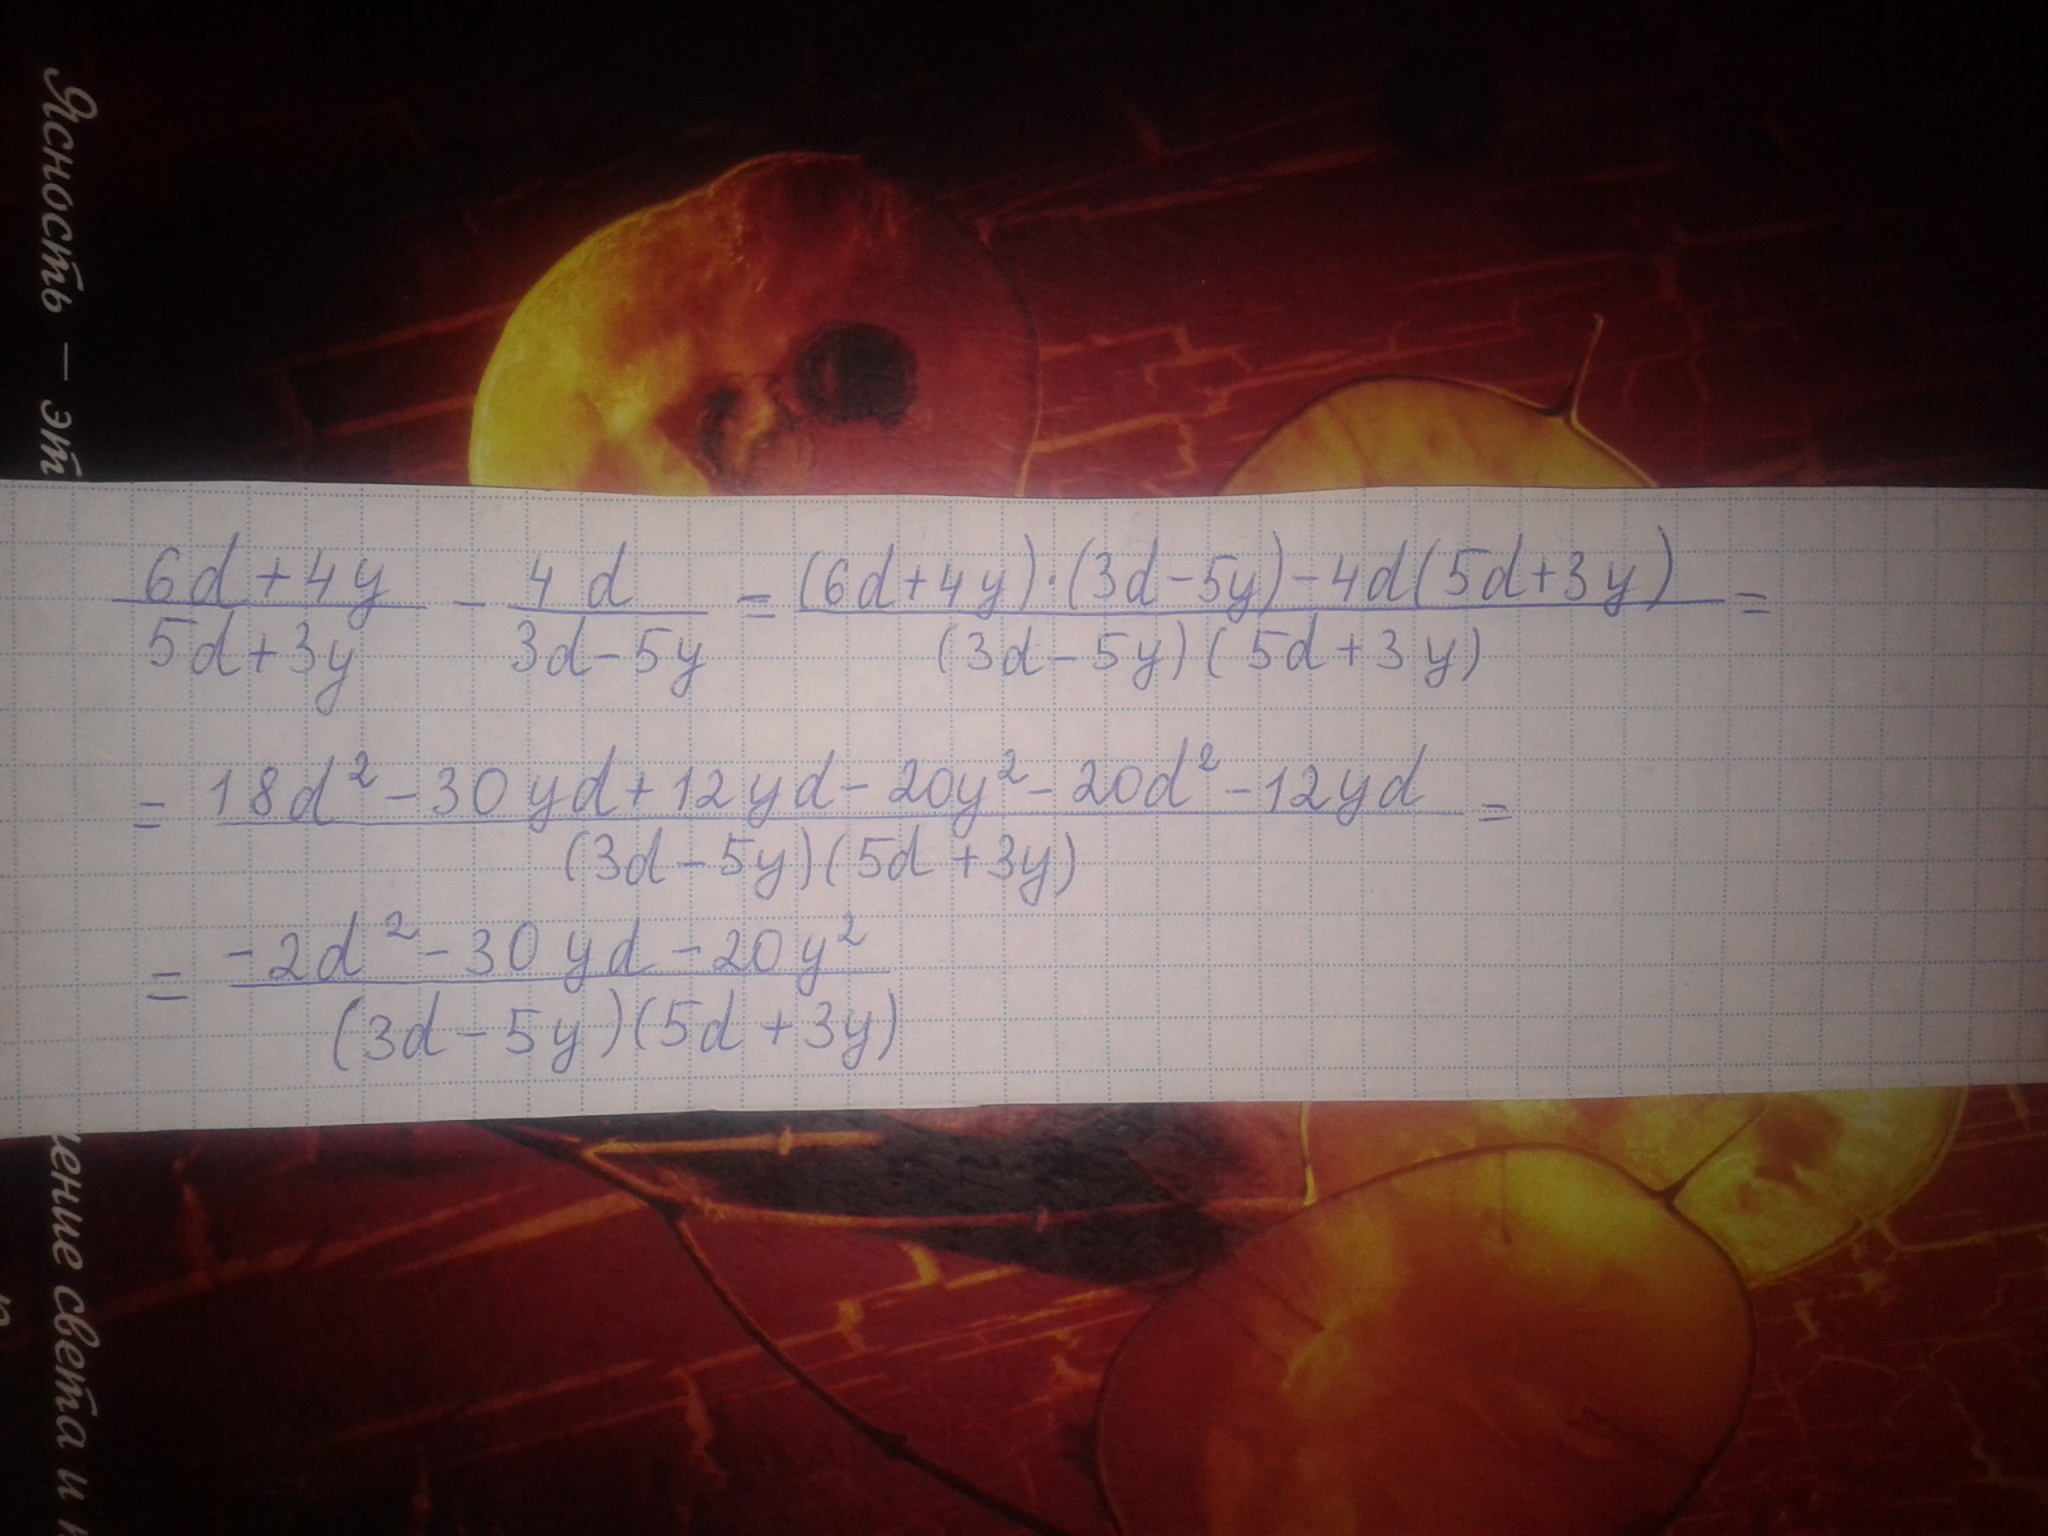 Ясность – эт
(6d+4y)/(5d+3y) - 4d/(3d-5y) = ((6d+4y)·(3d-5y)-4d(5d+3y))/((3d-5y)(5d+3y)) =
= (18d²-30yd+12yd-20y²-20d²-12yd)/((3d-5y)(5d+3y)) =
= (-2d²-30yd-20y²)/((3d-5y)(5d+3y))
чение света и